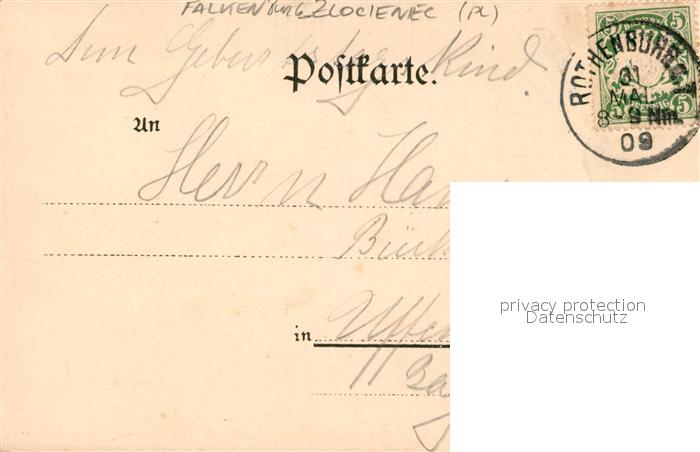 FALKENBURG ZLOCIENEC (PL)
Zum Geburtstag Kind
Postkarte.
5 5
ROTHENBURG
31
MAI
8-9 Nm.
09
5 5
An
Herrn
in
privacy protection
Datenschutz